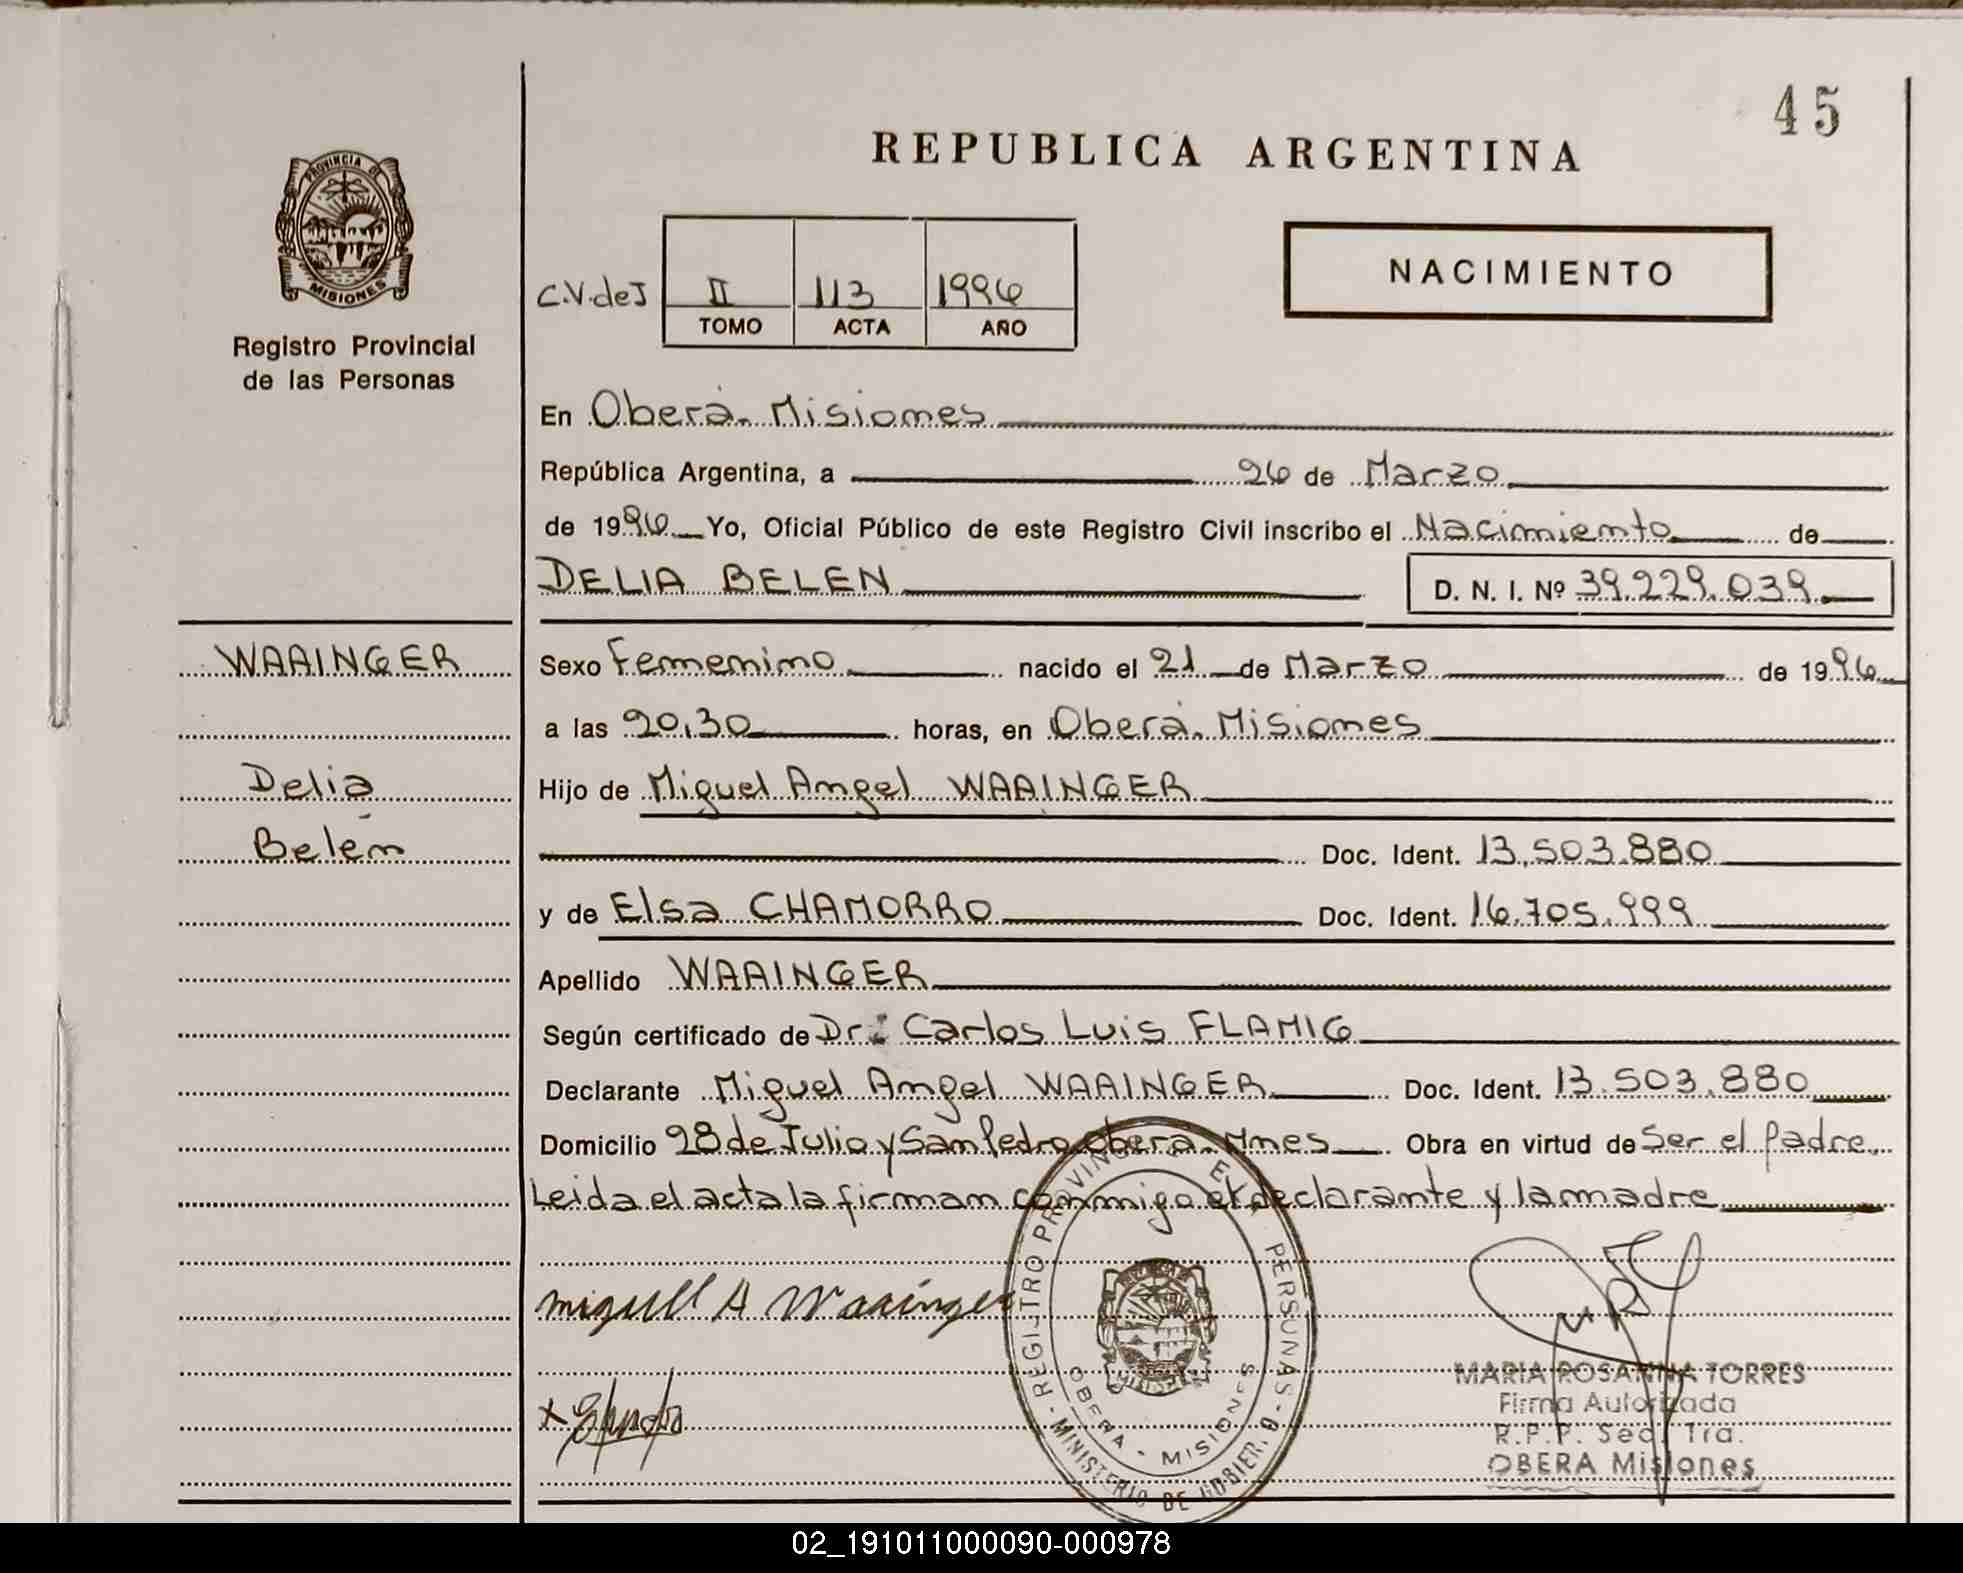 45
REPUBLICA ARGENTINA
PROVINCIA DE
MISIONES
Registro Provincial
de las Personas
C.V.deJ II 113 1996
TOMO ACTA AÑO
NACIMIENTO
En Oberá. Misiones
República Argentina, a 26 de Marzo
de 1996 Yo, Oficial Público de este Registro Civil inscribo el Nacimiento de
DELIA BELEN D. N. I. Nº 39.229.039
WAAINGER
Sexo Femenino nacido el 21 de Marzo de 1996
a las 20,30 horas, en Oberá. Misiones
Delia
Hijo de Miguel Angel WAAINGER
Belén
Doc. Ident. 13.503.880
y de Elsa CHAMORRO Doc. Ident. 16.705.999
Apellido WAAINGER
Según certificado de Dr: Carlos Luis FLAMIG
Declarante Miguel Angel WAAINGER Doc. Ident. 13.503.880
Domicilio 28 de Julio y San Pedro Oberá. Mnes Obra en virtud de Ser el Padre.
Leida el acta la firman conmigo el declarante y la madre
miguel A Waainger
REGISTRO PROVINCIAL DE LAS PERSONAS
MINISTERIO DE GOBIERNO
OBERA - MISIONES
MARIA ROSANNA TORRES
Firma Autorizada
R.P.P. Sec. 1ra.
OBERA Misiones
02_191011000090-000978